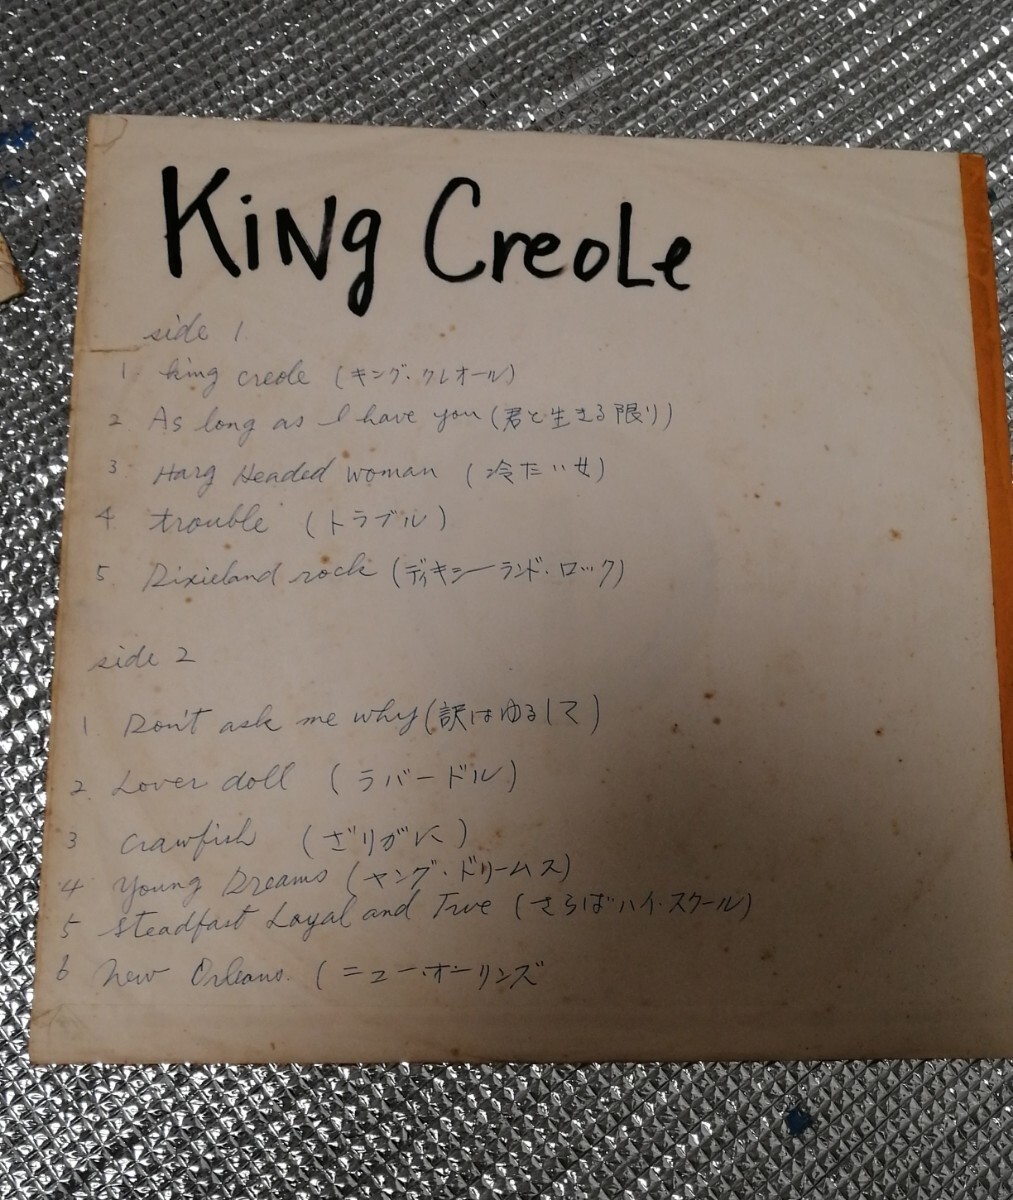 KiNg CreoLe
side 1.
1 king creole (キング・クレオール)
2 As long as I have you (君と生きる限り)
3 Harg Headed woman (冷たい女)
4 trouble (トラブル)
5 Dixieland rock (ディキシーランド・ロック)
side 2
1. Don't ask me why (訳はゆるして)
2. Lover doll (ラバードル)
3 crawfish (ざりがに)
4 Young Dreams (ヤング・ドリームス)
5 Steadfast Loyal and True (さらばハイ・スクール)
6 New Orleans. (ニュー・オーリンズ